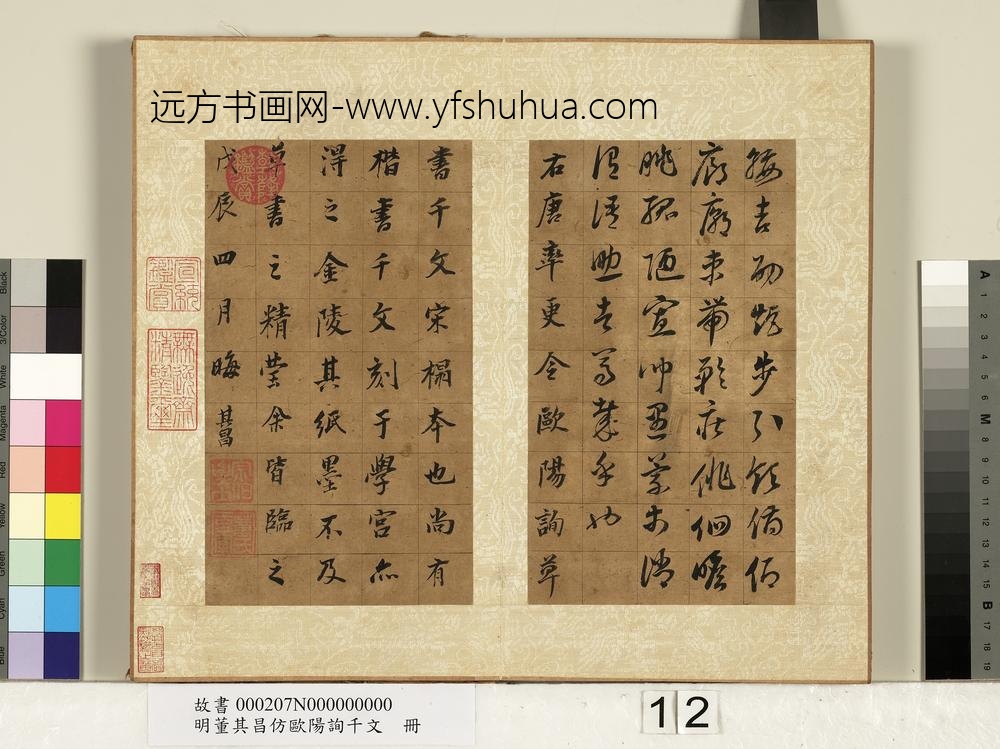 远方书画网-www.yfshuhua.com
綏吉劭矩步引領俯仰
廊廟束帶矜莊徘徊瞻
眺孤陋寡聞愚蒙等誚
謂語助者焉哉乎也
右唐率更令歐陽詢草
書千文宋榻本也尚有
楷書千文刻于學宮亦
得之金陵其紙墨不及
草書之精瑩余皆臨之
戊辰四月晦 其昌
乾隆鑑賞
宣統鑑賞
無逸齋精鑒璽
Black
3/Color
White
Magenta
Red
Yellow
Green
Cyan
Blue
A 1 2 3 4 5 6 M 8 9 10 11 12 13 14 15 B 17 18 19
故書 000207N000000000
明董其昌仿歐陽詢千文 冊
12